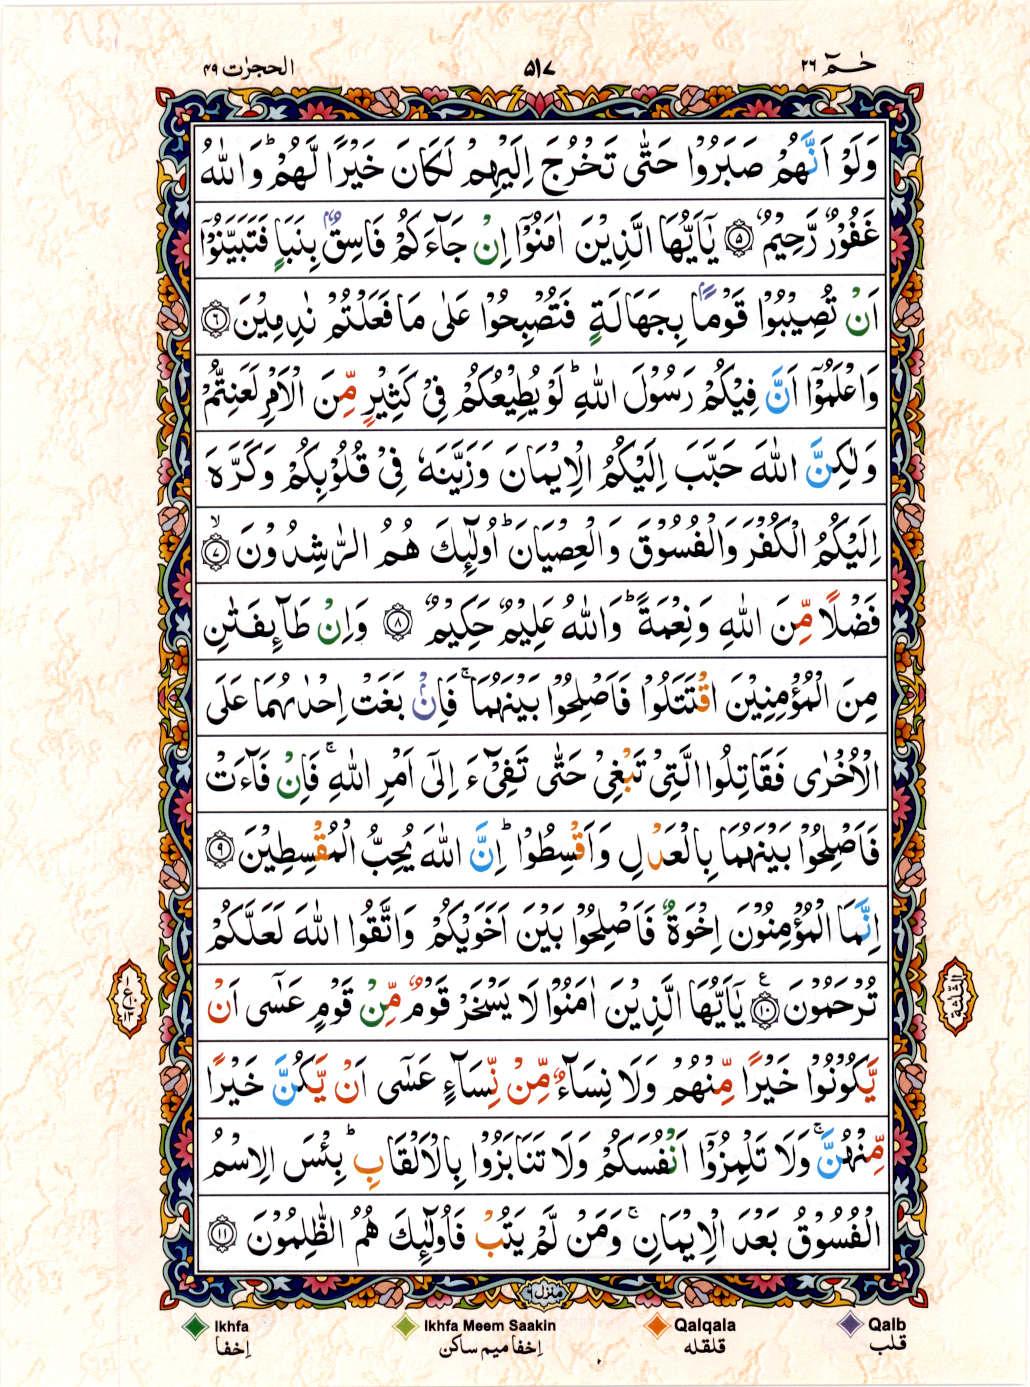 حٰـمٓ ٢٦
٥١٧
الحجرٰت ٤٩
وَلَوْ اَنَّهُمْ صَبَرُوْا حَتّٰى تَخْرُجَ اِلَيْهِمْ لَكَانَ خَيْرًا لَّهُمْ ؕ وَاللّٰهُ
غَفُوْرٌ رَّحِيْمٌ ۝٥ يٰۤاَيُّهَا الَّذِيْنَ اٰمَنُوْۤا اِنْ جَآءَكُمْ فَاسِقٌۢ بِنَبَاٍ فَتَبَيَّنُوْۤا
اَنْ تُصِيْبُوْا قَوْمًاۢ بِجَهَالَةٍ فَتُصْبِحُوْا عَلٰى مَا فَعَلْتُمْ نٰدِمِيْنَ ۝٦
وَاعْلَمُوْۤا اَنَّ فِيْكُمْ رَسُوْلَ اللّٰهِ ؕ لَوْ يُطِيْعُكُمْ فِيْ كَثِيْرٍ مِّنَ الْاَمْرِ لَعَنِتُّمْ
وَلٰكِنَّ اللّٰهَ حَبَّبَ اِلَيْكُمُ الْاِيْمَانَ وَزَيَّنَهٗ فِيْ قُلُوْبِكُمْ وَكَرَّهَ
اِلَيْكُمُ الْكُفْرَ وَالْفُسُوْقَ وَالْعِصْيَانَ ؕ اُولٰٓئِكَ هُمُ الرّٰشِدُوْنَ ۝٧ۙ
فَضْلًا مِّنَ اللّٰهِ وَنِعْمَةً ؕ وَاللّٰهُ عَلِيْمٌ حَكِيْمٌ ۝٨ وَاِنْ طَآئِفَتٰنِ
مِنَ الْمُؤْمِنِيْنَ اقْتَتَلُوْا فَاَصْلِحُوْا بَيْنَهُمَا ۚ فَاِنْۢ بَغَتْ اِحْدٰىهُمَا عَلَى
الْاُخْرٰى فَقَاتِلُوا الَّتِيْ تَبْغِيْ حَتّٰى تَفِيْٓءَ اِلٰٓى اَمْرِ اللّٰهِ ۚ فَاِنْ فَآءَتْ
فَاَصْلِحُوْا بَيْنَهُمَا بِالْعَدْلِ وَاَقْسِطُوْا ؕ اِنَّ اللّٰهَ يُحِبُّ الْمُقْسِطِيْنَ ۝٩
اِنَّمَا الْمُؤْمِنُوْنَ اِخْوَةٌ فَاَصْلِحُوْا بَيْنَ اَخَوَيْكُمْ وَاتَّقُوا اللّٰهَ لَعَلَّكُمْ
تُرْحَمُوْنَ ۝١٠ۧ يٰۤاَيُّهَا الَّذِيْنَ اٰمَنُوْا لَا يَسْخَرْ قَوْمٌ مِّنْ قَوْمٍ عَسٰٓى اَنْ
يَّكُوْنُوْا خَيْرًا مِّنْهُمْ وَلَا نِسَآءٌ مِّنْ نِّسَآءٍ عَسٰٓى اَنْ يَّكُنَّ خَيْرًا
مِّنْهُنَّ ۚ وَلَا تَلْمِزُوْۤا اَنْفُسَكُمْ وَلَا تَنَابَزُوْا بِالْاَلْقَابِ ؕ بِئْسَ الِاسْمُ
الْفُسُوْقُ بَعْدَ الْاِيْمَانِ ۚ وَمَنْ لَّمْ يَتُبْ فَاُولٰٓئِكَ هُمُ الظّٰلِمُوْنَ ۝١١
الثلٰثة
ع
منزل ٦
Ikhfa
Ikhfa Meem Saakin
Qalqala
Qalb
إخفا
إخفا ميم ساكن
قلقله
قلب